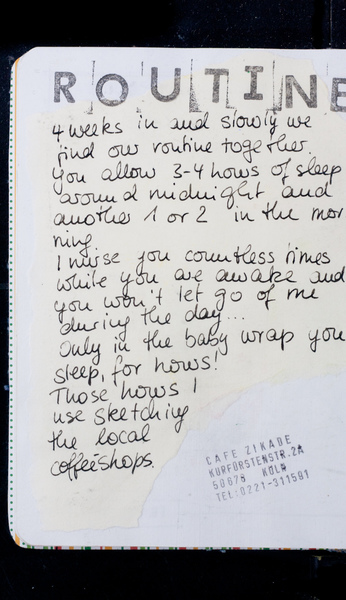 ROUTINE
4 weeks in and slowly we
find our routine together.
you allow 3-4 hours of sleep
around midnight and
another 1 or 2 in the mor
ning.
I nurse you countless times
while you are awake and
you won't let go of me
during the day...
Only in the baby wrap you
sleep, for hours!
Those hours I
use sketching
the local
coffeeshops.
CAFE ZIKADE
KURFÜRSTENSTR.2A
50678 KÖLN
TEL:0221-311591